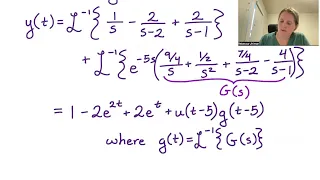 y(t) = ℒ⁻¹{ 1/s - 2/(s-2) + 2/(s-1) }
+ ℒ⁻¹{ e^(-5s) ( (9/4)/s + (1/2)/s² + (7/4)/(s-2) - 4/(s-1) ) }
G(s)
= 1 - 2e^(2t) + 2e^t + u(t-5)g(t-5)
where g(t) = ℒ⁻¹{G(s)}